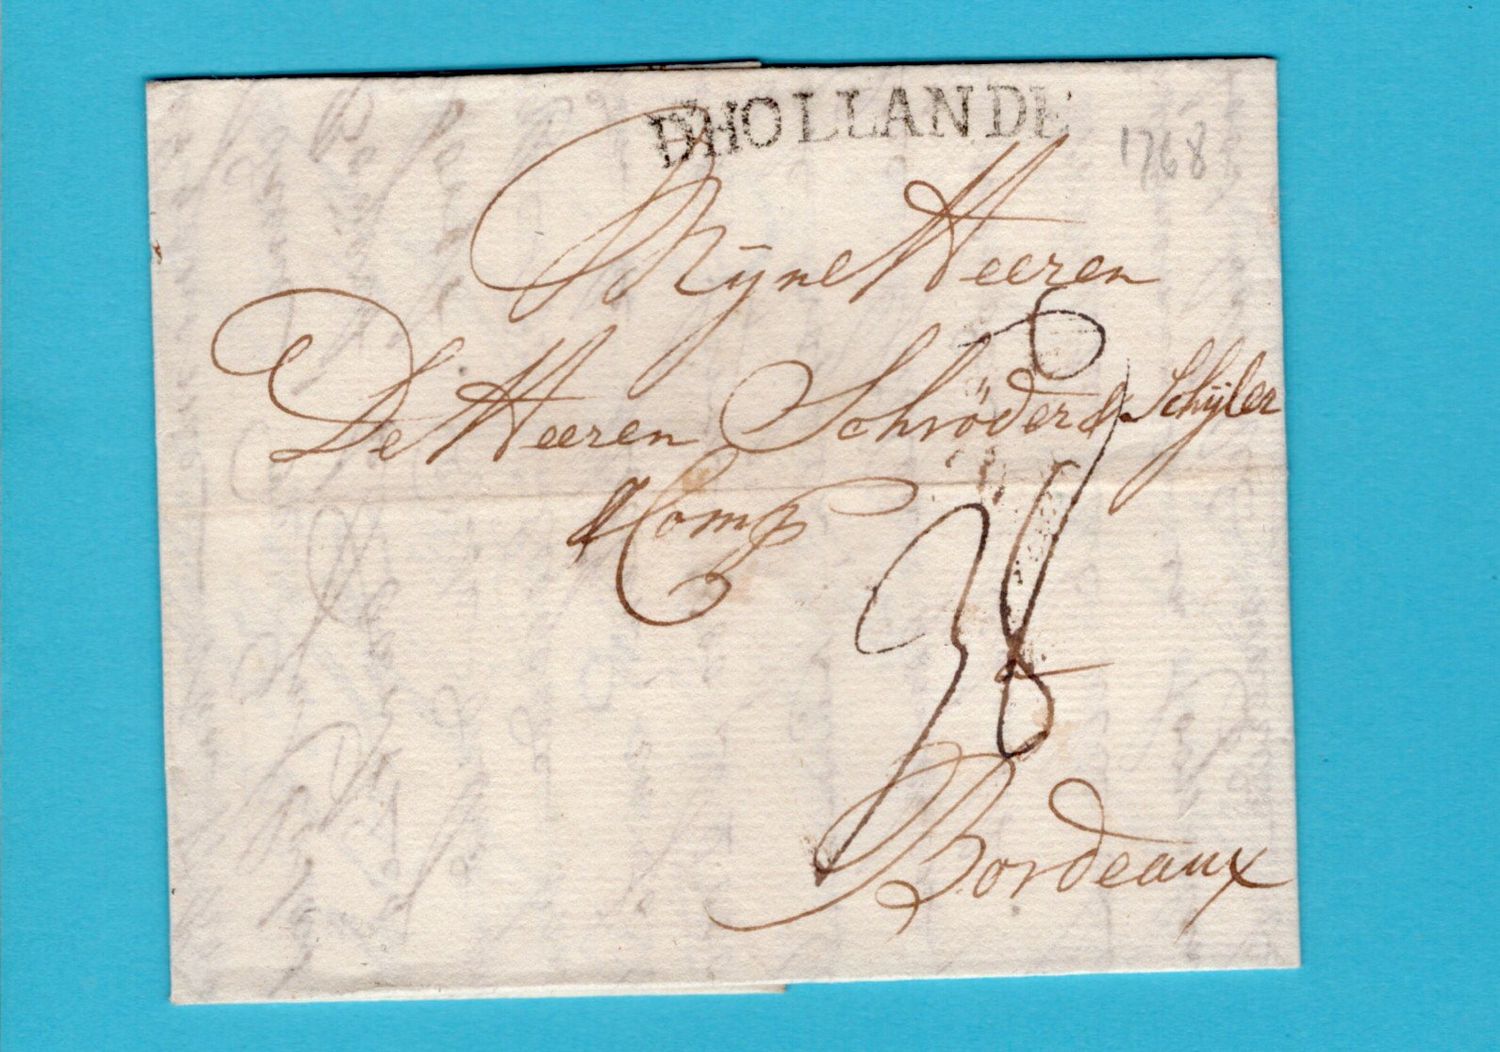 DHOLLANDE
1768
Mÿne Heeren
De Heeren Schröder & Schÿler
& Comp
38
Bordeaux